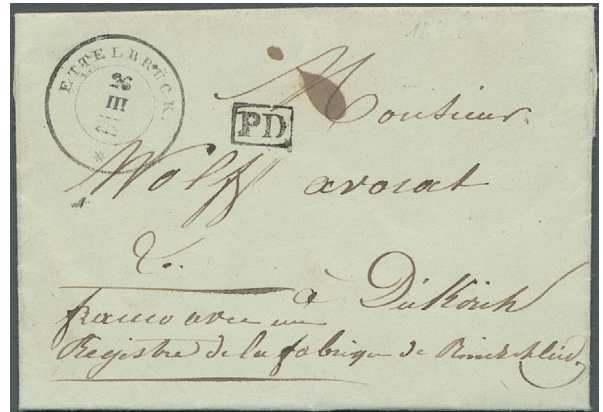 ETTELBRÜCK.
26
III
PD
Monsieur
Wolff avocat
à Diekirch
franco avec un
Registre de la fabrique de